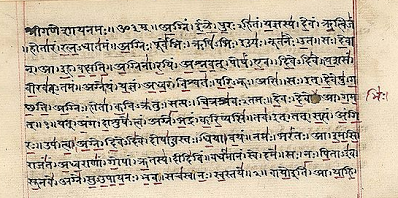 श्रीगणेशायनमः॥ॐ३म्॥अग्निं।ईळे।पुरःहितं।यज्ञस्य।देवं।ऋत्विजं
॥होतारं।रत्नधातमं॥अग्निः।पूर्वेभिः।ऋषिभिः।ईड्यः।नूतनैः।उत।सः।देवा
न्।आ।इह।वक्षति॥अग्निना।रयिं।अश्नवत्।पोषं।एव।दिवेदिवे।यशसं
वीरवत्तमं॥अग्ने।यं।यज्ञं।अध्वरं।विश्वतः।परिभूः।असि।सः।इत्।देवेषु।ग
छति॥अग्निः।होता।कविक्रतुः।सत्यः।चित्रश्रवःतमः।देवः।देवे।आ।गम भिः।
त्॥१॥यत्।अंग।दाशुषे।त्वं।अग्ने।भद्रं।करिष्यसि।तव।इत्।तत्।सत्यं।अंगिरः
॥उप।त्वा।अग्ने।दिवेदिवे।दोषावस्तः।धिया।वयं।नमः।भरंतः।आ।इमसि॥
राजंतं।अध्वराणां।गोपां।ऋतस्य।दीदिविं।वर्धमानं।स्वे।दमे॥सः।नः।पिताइव
सूनवे।अग्ने।सुउपायनः।भव।सचस्व।नः।स्वस्तये॥२॥वायोइति।आ।याहि।